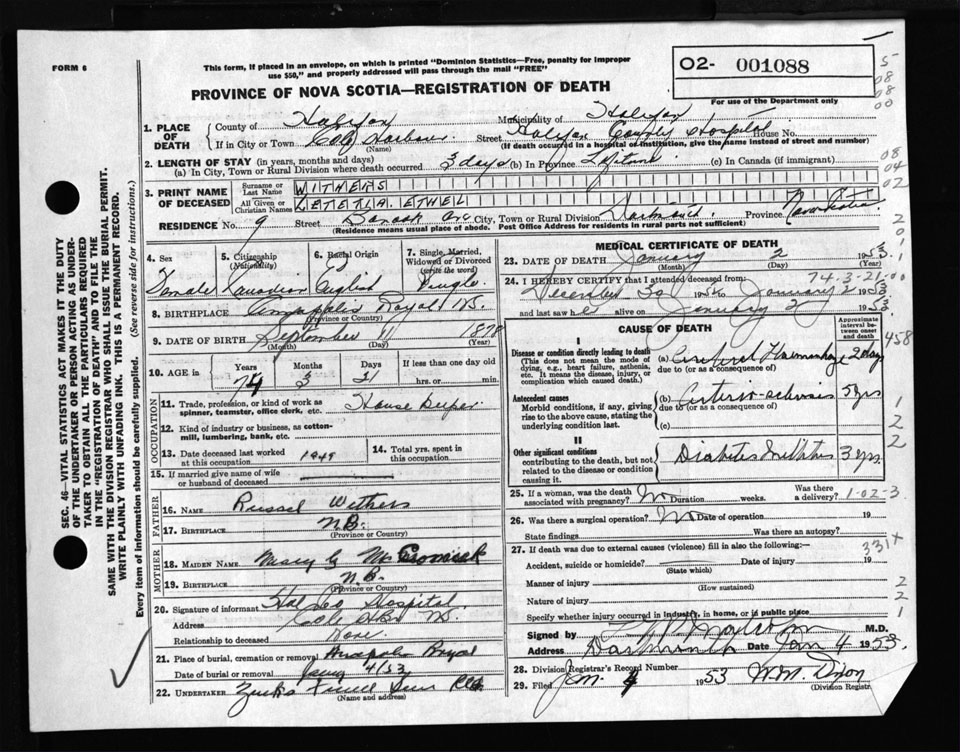 FORM 6
This form, if placed in an envelope, on which is printed "Dominion Statistics—Free, penalty for improper
use $50," and properly addressed will pass through the mail "FREE"
PROVINCE OF NOVA SCOTIA—REGISTRATION OF DEATH
02- 001088
For use of the Department only
1. PLACE OF DEATH
County of Halifax Municipality of Halifax
If in City or Town Cole Harbour Street Halifax County Hospital House No.
(Name) (If death occurred in a hospital or institution, give the name instead of street and number)
2. LENGTH OF STAY (in years, months and days)
(a) In City, Town or Rural Division where death occurred 3 days (b) In Province Lifetime (c) In Canada (if immigrant)
3. PRINT NAME OF DECEASED
Surname or Last Name WITHERS
All Given or Christian Names LETETIA ETHEL
RESIDENCE No. 9 Street City, Town or Rural Division Dartmouth Province Nova Scotia
(Residence means usual place of abode. Post Office Address for residents in rural parts not sufficient)
4. Sex Female
5. Citizenship (Nationality) Canadian
6. Racial Origin English
7. Single, Married, Widowed or Divorced (write the word) Single
8. BIRTHPLACE Annapolis Royal NS.
(Province or Country)
9. DATE OF BIRTH September 11 1878
(Month) (Day) (Year)
10. AGE in Years 74 Months 3 Days 21 If less than one day hrs. or min.
OCCUPATION
11. Trade, profession, or kind of work as spinner, teamster, office clerk, etc. House Keeper
12. Kind of industry or business, as cotton-mill, lumbering, bank, etc.
13. Date deceased last worked at this occupation 1949
14. Total yrs. spent in this occupation
15. If married give name of wife or husband of deceased
FATHER
16. Name Russel Withers
17. Birthplace N.B.
(Province or Country)
MOTHER
18. Maiden Name Mary C McCormick
19. Birthplace N.B.
(Province or Country)
20. Signature of informant Hal Co Hospital
Address Cole Hbr NS.
Relationship to deceased None
21. Place of burial, cremation or removal Annapolis Royal
Date of burial or removal Jany 4/53
22. UNDERTAKER
(Name and address)
MEDICAL CERTIFICATE OF DEATH
23. DATE OF DEATH January 2 1953
(Month) (Day)
74-3-21
24. I HEREBY CERTIFY that I attended deceased from:
December 30 1952 to January 2 1953
and last saw h alive on January 2 1953
CAUSE OF DEATH
Approximate interval between onset and death
I
Disease or condition directly leading to death
(This does not mean the mode of dying, e.g., heart failure, asthenia, etc. It means the disease, injury, or complication which caused death.)
(a) Cerebral Haemorrhage 2 days
due to (or as a consequence of)
Antecedent causes
Morbid conditions, if any, giving rise to the above cause, stating the underlying condition last.
(b) Arterio-sclerosis 5 yrs
due to (or as a consequence of)
(c)
II
Other significant conditions contributing to the death, but not related to the disease or condition causing it.
Diabetes Mellitus 3 yrs.
25. If a woman, was the death associated with pregnancy? No Duration weeks. Was there a delivery? 1-02-3
26. Was there a surgical operation? No Date of operation 19
State findings Was there an autopsy?
27. If death was due to external causes (violence) fill in also the following:— 331+
Accident, suicide or homicide? Date of injury 19
(State which)
Manner of injury
(How sustained)
Nature of injury
Specify whether injury occurred in industry, in home, or in public place
Signed by M.D.
Address Dartmouth Date Jan 4 1953.
28. Division Registrar's Record Number
29. Filed Jan. 4 1953 W.M. Dixon
(Division Registrar)
SEC. 46—VITAL STATISTICS ACT MAKES IT THE DUTY
OF THE UNDERTAKER OR PERSON ACTING AS UNDER-
TAKER TO OBTAIN ALL THE PARTICULARS REQUIRED
IN THE "REGISTRATION OF DEATH" AND TO FILE THE
SAME WITH THE DIVISION REGISTRAR WHO SHALL ISSUE THE BURIAL PERMIT.
WRITE PLAINLY WITH UNFADING INK. THIS IS A PERMANENT RECORD.
Every item of information should be carefully supplied. (See reverse side for instructions.)
5
08
08
00
08
04
02
2
0
1
00
458
1
2
2
2
2
1